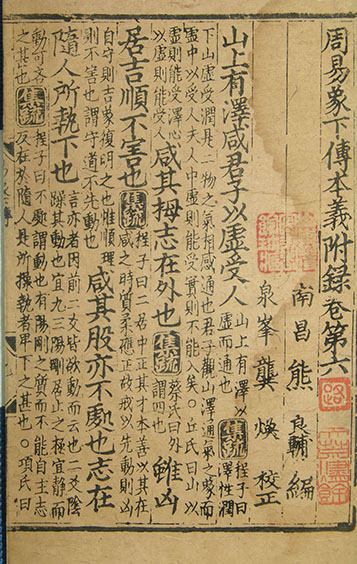 周易象下傳本義附錄卷第六
南昌熊良輔編
泉峯龔煥校正
山上有澤咸君子以虛受人 山上有澤以虛而通也 集疏 程子曰澤性潤
下山虛受潤是二物之氣相感通也君子觀山澤通氣之象而虛中以受人夫人中虛則能受實則不能入矣○丘氏曰山以
虛則能受澤心以虛則能受人 咸其拇志在外也 集疏 蔡氏曰外謂四也 雖凶
居吉順不害也 集疏 程子曰二居中正其才本善以其在咸之時質柔應正故戒以先動則凶
自守則吉象復明之也惟順理則不害也謂守道不先動也 咸其股亦不處也志在
隨人所執下也 言亦者因前二爻皆欲動而云也二爻陰躁其動也宜九三陽剛居止之極宜靜而
動可吝之甚也 集疏 程子曰不處謂動也有陽剛之質而不能自主志反在於隨人是所操執者卑下之甚也○項氏曰